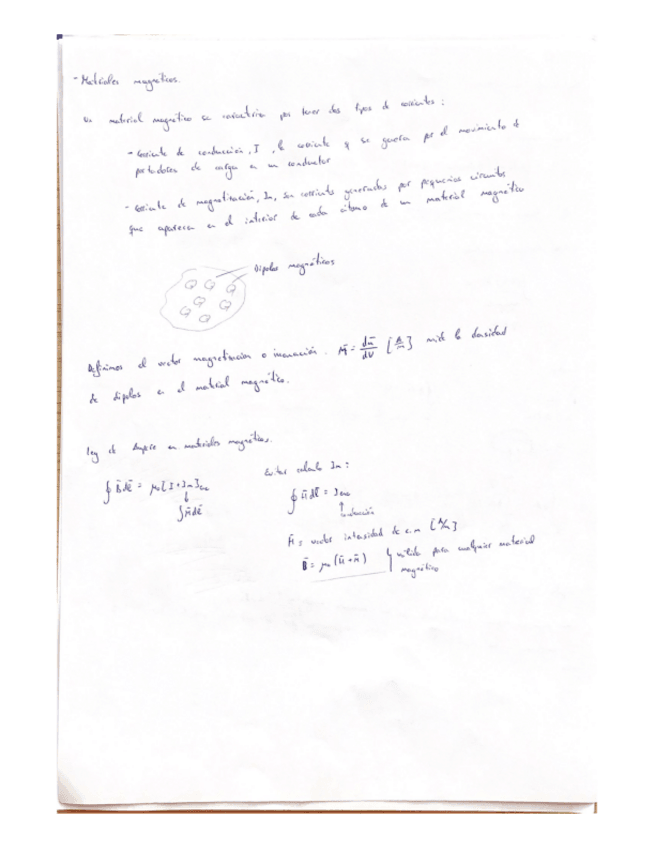 - Materiales magnéticos.
Un material magnético se caracteriza por tener dos tipos de corrientes:
- Corriente de conducción, I, la corriente q se genera por el movimiento d
portadores de carga en un conductor
- Corriente de magnetización, Im, son corrientes generadas por pequeños circuitos
que aparecen en el interior de cada átomo de un material magnético
Dipolos magnéticos
Definimos el vector magnetización o imanación. M̄ = dm̄/dv [A/m] mide la densidad
de dipolos en el material magnético.
Ley de Ampere en materiales magnéticos.
Evitar calculo Im:
∮ B̄ dl̄ = μ₀[I + Im]
∫ M̄ dl̄
∮ H̄ dl̄ = I
H̄ = vector intensidad de c.m [A/m]
B̄ = μ₀(H̄ + M̄) } válido para cualquier material
magnético